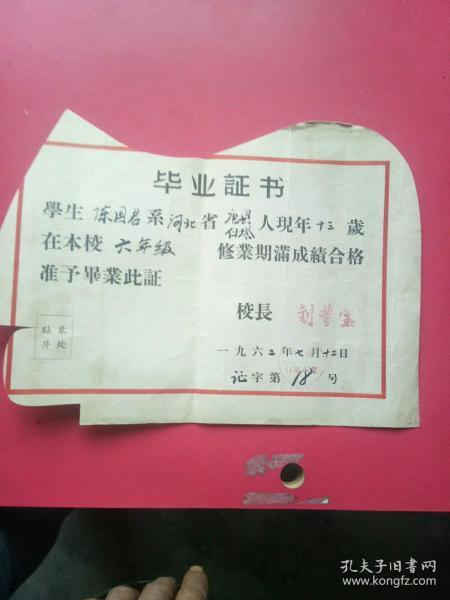 毕业証书
學生 陈国君 系 河北 省 唐县 白塔 人現年 十三 歲
在本校 六年级 修業期滿成績合格
准予畢業此証
校長 刘
一九六二年七月十二日
証字第 18 号
貼 片 來 处
孔夫子旧书网
www.kongfz.com